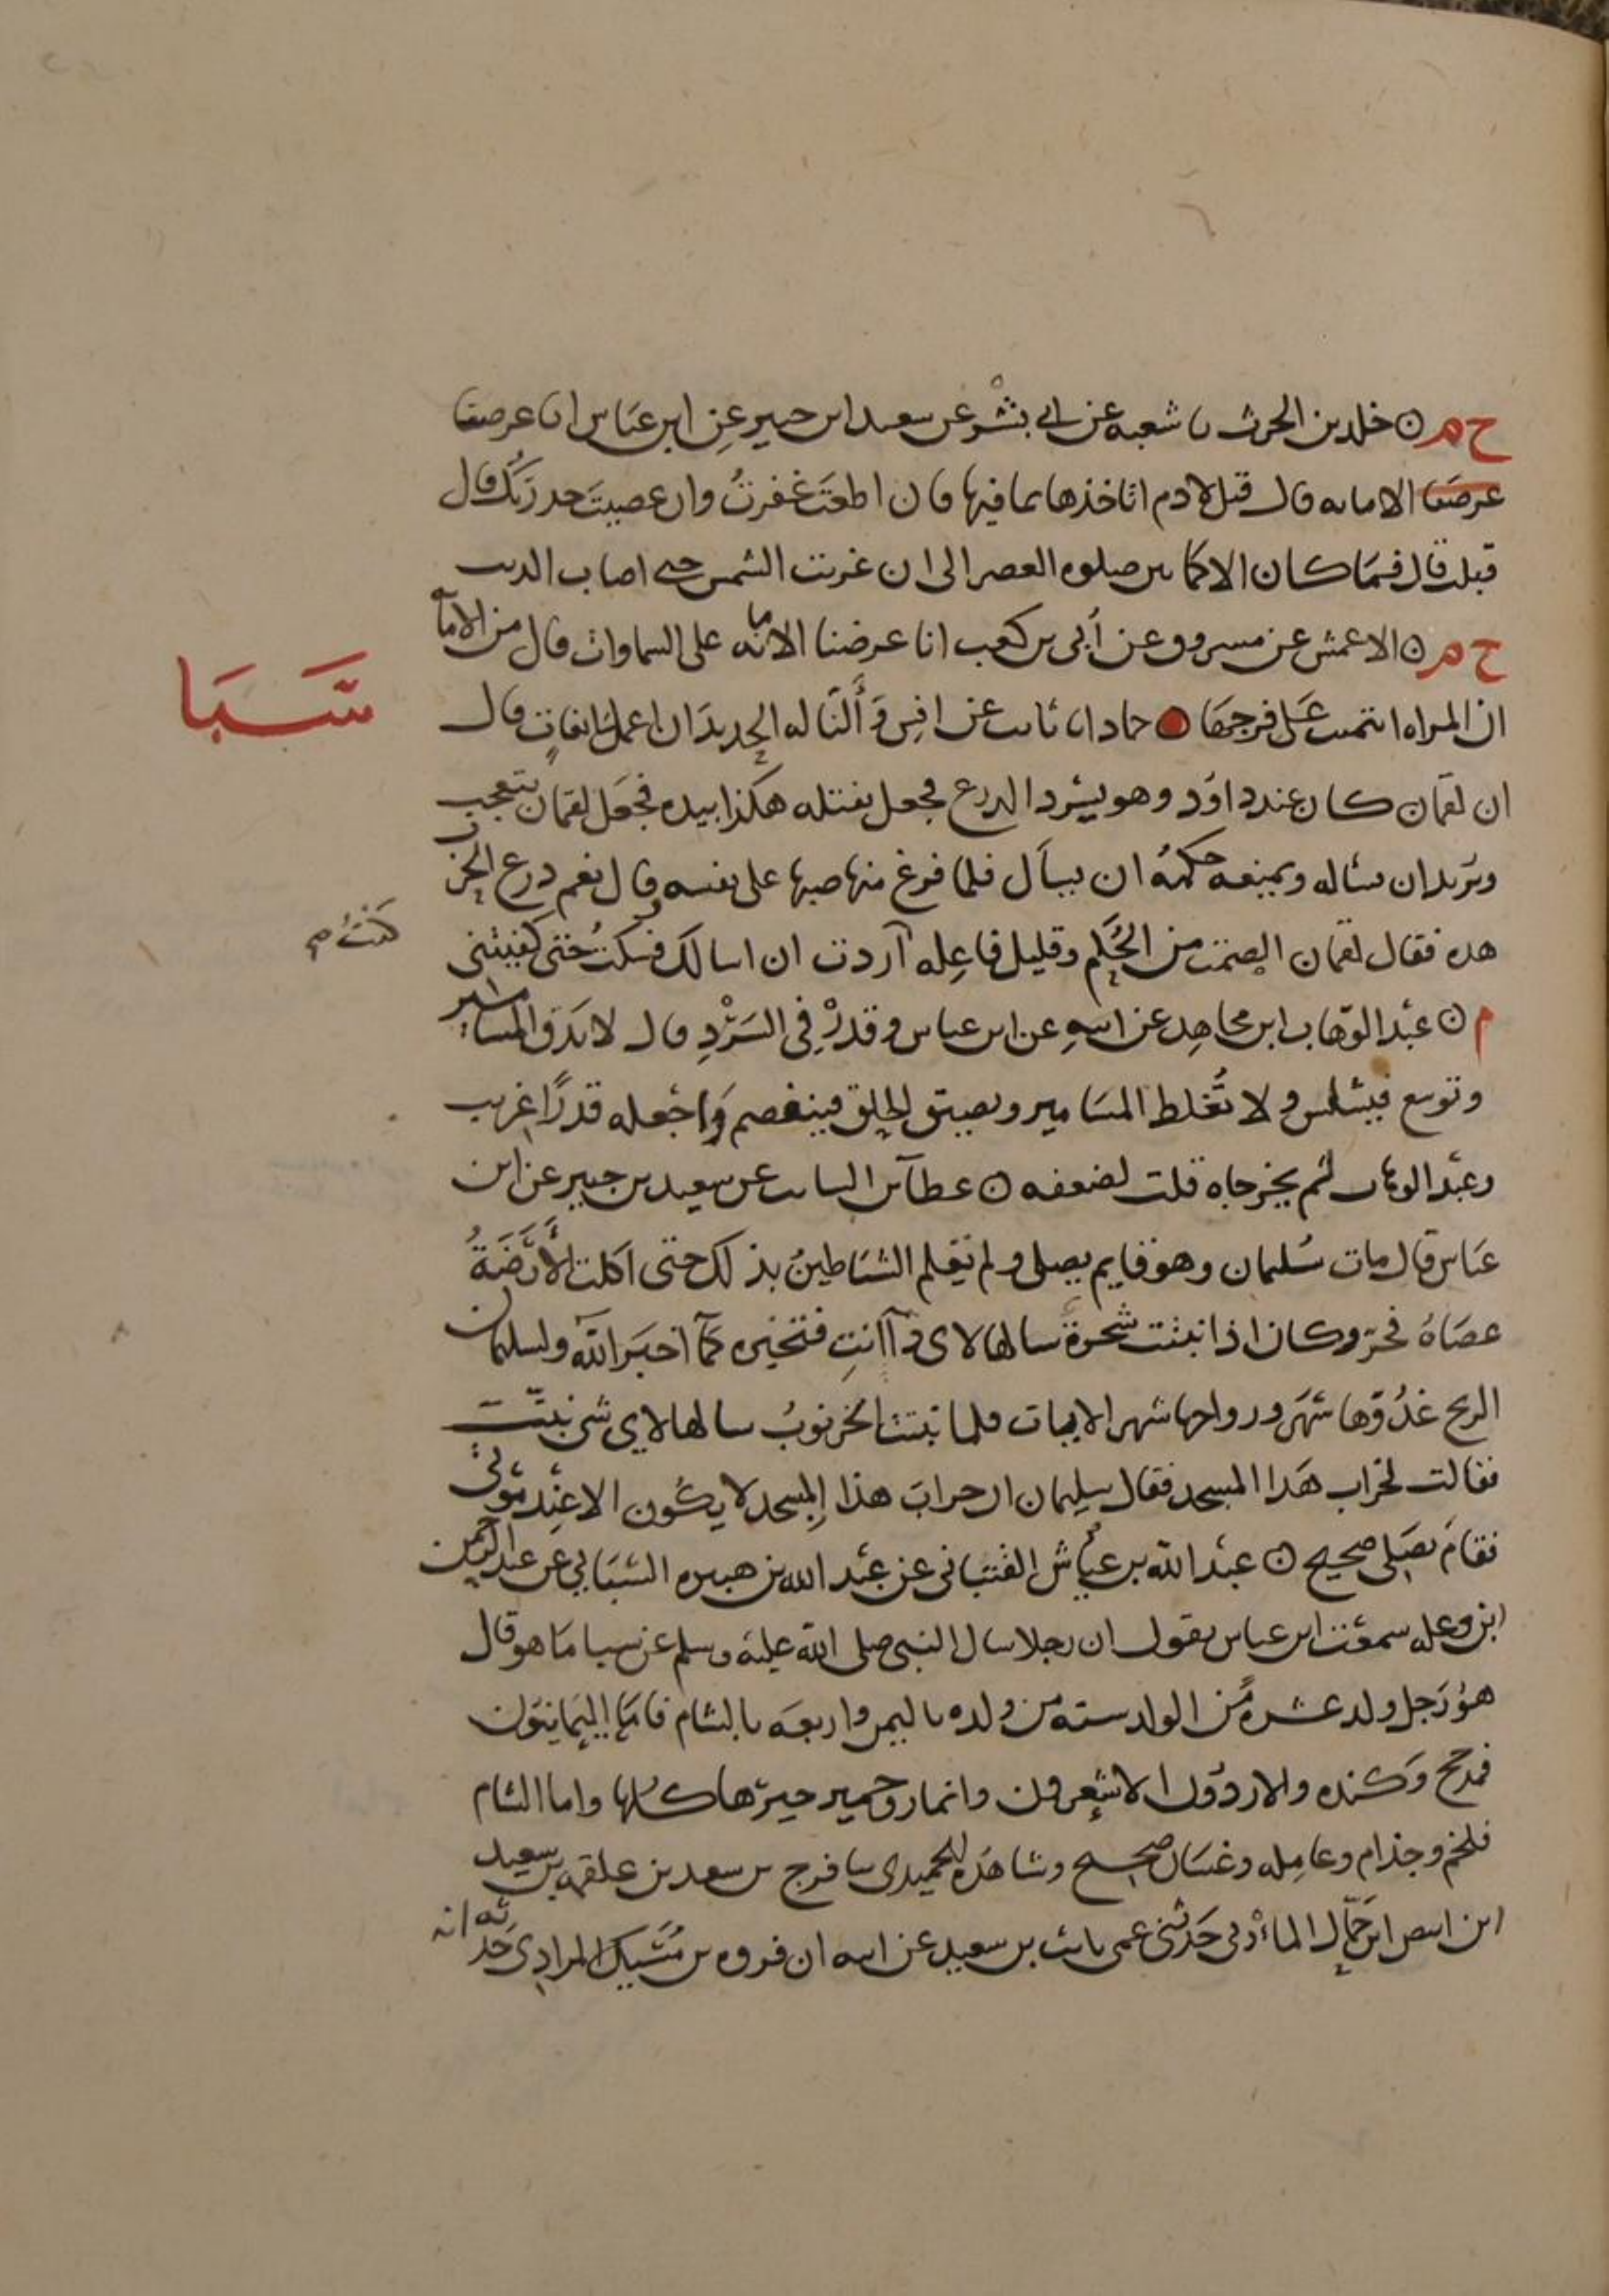 خ م ۞ خلد بن الحرث ثنا شعبه عن ابي بشر عن سعيد ابن جبير عن ابن عباس انا عرضنا
عرضنا الامانه قال قيل لادم اتاخذها بما فيها فان اطعت غفرت وان عصيت حذرتك قال
قبلت قال فما كان الا كما بين صلوه العصر الى ان غربت الشمس حتى اصاب الذنب
خ م ۞ الاعمش عن مسروق عن أبي بن كعب انا عرضنا الامانه على السماوات قال من الامانه
ان المراه ائتمنت على فرجها ● حماد انا ثابت عن انس وَأَلنَّا له الحديد ان اعمل سابغات قال
سَبَا
ان لقمان كان عند داود وهو يسرد الدرع فجعل يفتله هكذا بيده فجعل لقمان يتعجب
ويريد ان يساله ويمنعه حكمته ان يسأل فلما فرغ منها صبها على نفسه وقال نعم درع الحرب
هذه فقال لقمان الصمت من الحُكم وقليل فاعله اردت ان اسالك فسكتُّ حتى كفيتني
كنتُ صح
م ۞ عبد الوهاب ابن مجاهد عن ابيه عن ابن عباس وقدّرْ في السَرْدِ قال لا تدق المسامير
وتوسع فيسلس ولا تُغلظ المسَامير وتضيق الحلق فينفصم وَاجعله قدرًا غريب
وعبد الوهاب لم يخرجاه قلت لضعفه ۞ عطا بن السائب عن سعيد بن جبير عن ابن
عباس قال مات سُليمان وهو قايم يصلي ولم تعلم الشياطينُ بذلك حتى اكلت الأَرَضَةُ
عصَاهُ فخرّ وكان اذا نبتت شجرة سالها لاي دآ انتِ فتخبره كما اخبَر الله ولسليمان
الريح غدُوّها شهر ورواحها شهر الايات فلما نبتت الخرنوبُ سالها لاي شي نبتّ
فقالت لخراب هذا المسجد فقال سليمان ان خرابَ هذا المسجد لا يكون الا عند موتي
فقام يصَلي صحيح ۞ عبد الله بن عياش القتباني عن عبد الله بن هبيره السبَائي عن عبد الرحمن
ابن وعله سمعت ابن عباس يقول ان رجلا سال النبي صلى الله عليه وسلم عن سبا ما هو قال
هو رَجل ولد عشرةً من الولد سته من ولده باليمن واربعه بالشام فامّا اليمَانيون
فمذحج وكنده والازد والاشعرون وانمار وحمير خيرها كلها واما الشام
فلخم وجذام وعامله وغسان صحيح وشاهده للحميدي ثنا فرج بن سعيد بن علقمه بن سعيد
ابن ابيض ابن حمّال الماربي حَدثني عمي ثابت بن سعيد عن ابيه ان فروه بن مُسَيك المرادي حدثه انه